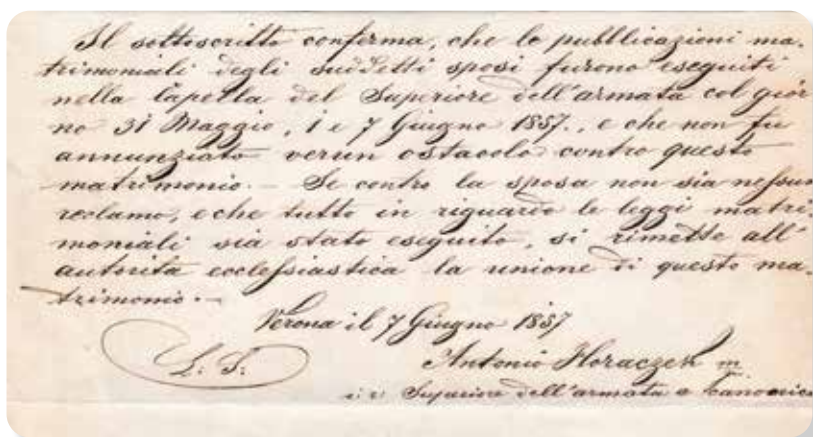 Il sottoscritto conferma, che le pubblicazioni ma-
trimoniali degli suddetti sposi furono eseguiti
nella Capella del Superiore dell'armata col gior
no 31 Maggio, 1 e 7 Giugno 1857., e che non fu
annunziato verun ostacolo contro questo
matrimonio. – Se contro la sposa non sia nessun
reclamo, e che tutto in riguardo le leggi matri-
moniali sia stato eseguito, si rimette all'
autorità ecclesiastica la unione di questo ma-
trimonio. –
Verona il 7 Giugno 1857
L: S:
Antonio Horaczek m
i: r: Superiore dell'armata e Canonico